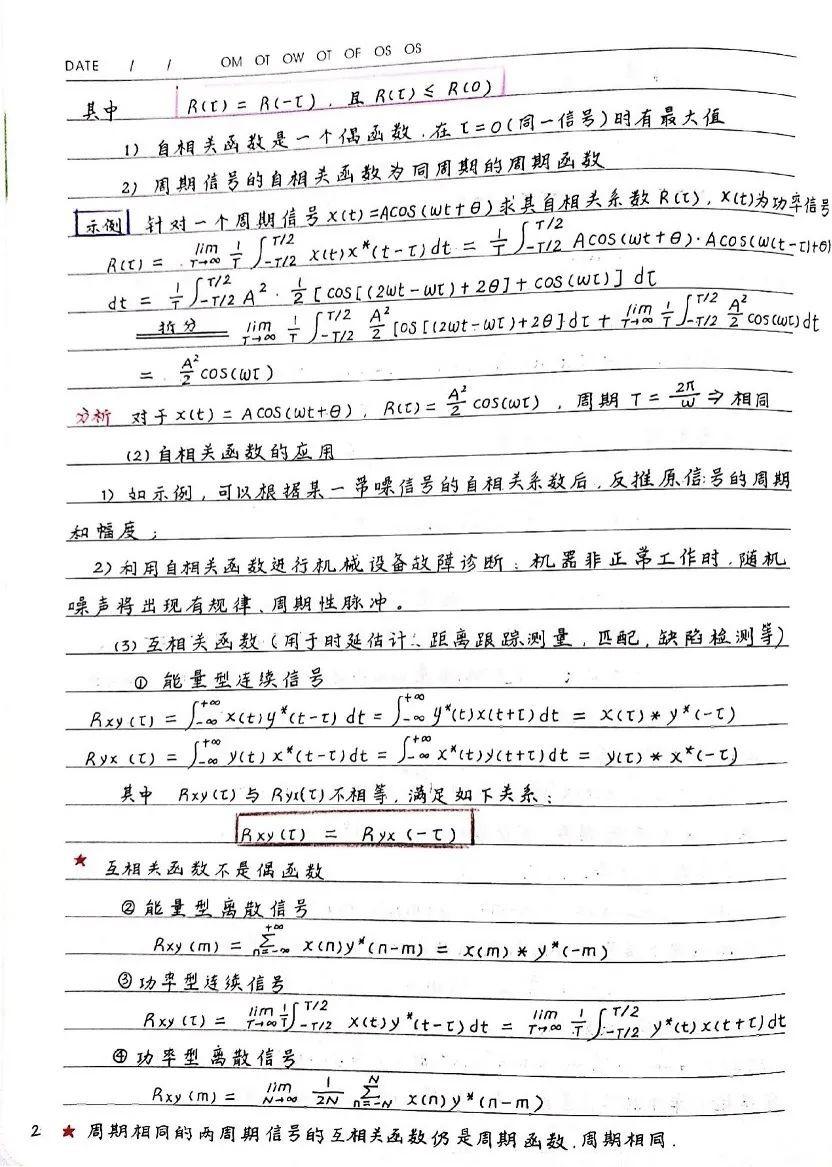 DATE / / OM OT OW OT OF OS OS
其中 R(τ) = R(-τ), 且 R(τ) ≤ R(0)
1) 自相关函数是一个偶函数.在 τ=0(同一信号)时有最大值
2) 周期信号的自相关函数为同周期的周期函数
示例 针对一个周期信号 x(t)=Acos(ωt+θ)求其自相关系数 R(τ), x(t)为功率信号
R(τ) = lim T→∞ 1/T ∫_{-T/2}^{T/2} x(t)x*(t-τ)dt = 1/T ∫_{-T/2}^{T/2} Acos(ωt+θ)·Acos(ω(t-τ)+θ)
dt = 1/T ∫_{-T/2}^{T/2} A² · 1/2 [cos[(2ωt-ωτ)+2θ]+cos(ωτ)] dτ
拆分 lim T→∞ 1/T ∫_{-T/2}^{T/2} A²/2 [cos[(2ωt-ωτ)+2θ]dτ + lim T→∞ 1/T ∫_{-T/2}^{T/2} A²/2 cos(ωτ)dt
= A²/2 cos(ωτ)
分析 对于 x(t) = Acos(ωt+θ), R(τ) = A²/2 cos(ωτ), 周期 T = 2π/ω ⇒ 相同
(2) 自相关函数的应用
1) 如示例, 可以根据某一带噪信号的自相关系数后, 反推原信号的周期
和幅度;
2) 利用自相关函数进行机械设备故障诊断: 机器非正常工作时,随机
噪声将出现有规律、周期性脉冲。
(3) 互相关函数 (用于时延估计、距离跟踪测量, 匹配, 缺陷检测等)
① 能量型连续信号
Rxy(τ) = ∫_{-∞}^{+∞} x(t)y*(t-τ) dt = ∫_{-∞}^{+∞} y*(t)x(t+τ)dt = x(τ) * y*(-τ)
Ryx(τ) = ∫_{-∞}^{+∞} y(t)x*(t-τ)dt = ∫_{-∞}^{+∞} x*(t)y(t+τ)dt = y(τ) * x*(-τ)
其中 Rxy(τ) 与 Ryx(τ) 不相等, 满足如下关系:
Rxy(τ) = Ryx(-τ)
★ 互相关函数不是偶函数
② 能量型离散信号
Rxy(m) = Σ_{n=-∞}^{+∞} x(n)y*(n-m) = x(m) * y*(-m)
③ 功率型连续信号
Rxy(τ) = lim T→∞ 1/T ∫_{-T/2}^{T/2} x(t)y*(t-τ)dt = lim T→∞ 1/T ∫_{-T/2}^{T/2} y*(t)x(t+τ)dt
④ 功率型离散信号
Rxy(m) = lim N→∞ 1/2N Σ_{n=-N}^{N} x(n)y*(n-m)
2 ★ 周期相同的两周期信号的互相关函数仍是周期函数.周期相同.